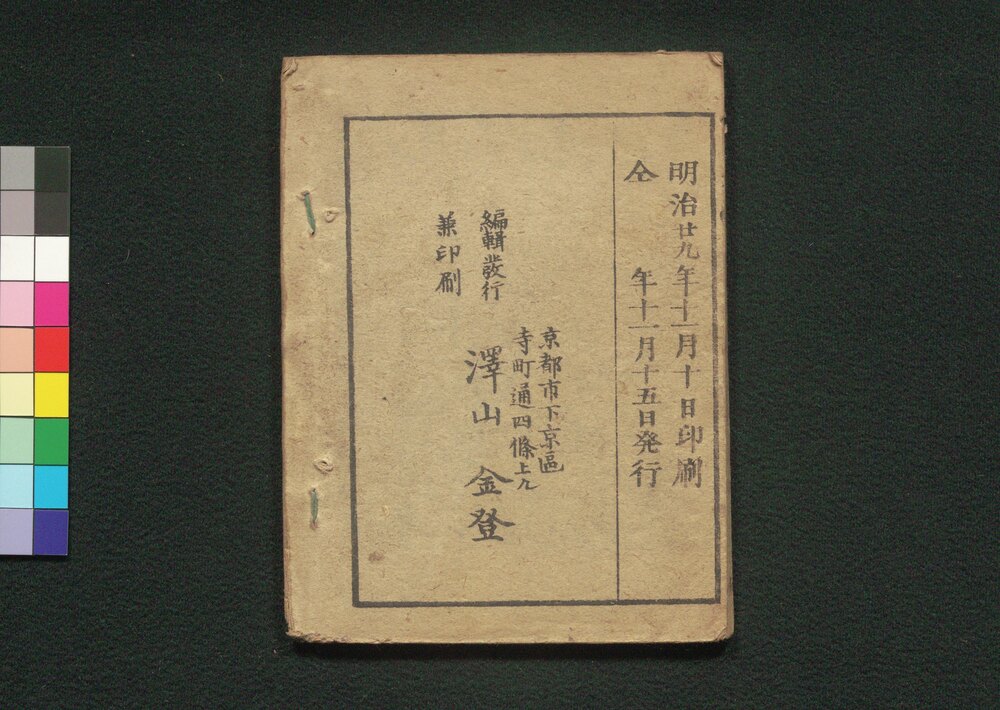 明治廿九年十一月十日印刷
仝年十一月十五日発行
京都市下京區
寺町通四條上ル
編輯發行
兼印刷
澤山金登